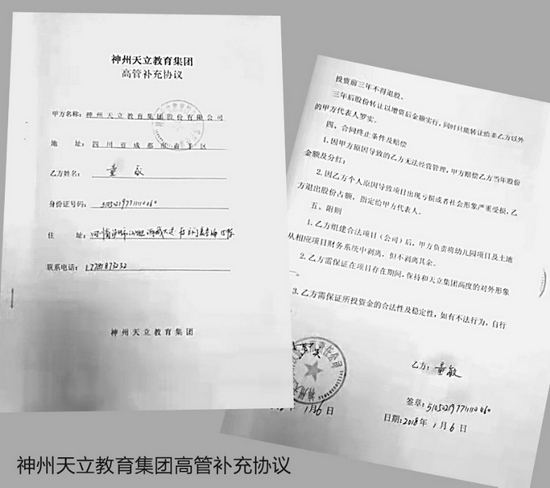 神州天立教育集团
高管补充协议
甲方名称：神州天立教育集团股份有限公司
地 址：四川省成都
乙方姓名：童敏
身份证号码：
住 址：
联系电话：
神州天立教育集团
投资前三年不得退股。
三年后股份转让以增资后金额实行，同时只能转让给非乙方以外
的甲方代表人罗实。
四、合同终止条件及赔偿
1.因甲方原因导致的乙方无法经营管理，甲方赔偿乙方当年股份
金额及分红；
2.因乙方个人原因导致项目出现亏损或者社会形象严重受损，乙
方退出股份占额，指定给甲方代表人。
五、附则
1.乙方组建合法项目（公司）后，甲方负责将幼儿园项目及土地
从相应项目财务系统中剥离，但不剥离其余。
2.乙方需保证在项目存在期间，保持和天立集团高度的对外形象
3.乙方需保证所投资金的合法性及稳定性，如有不法行为，自行
乙方：童敏
签章：
月6日
日期：2018年1月6日
神州天立教育集团高管补充协议